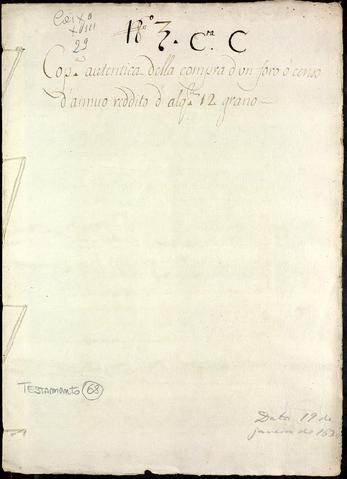 Caix.ª
XVIII
29
18º 7. Cra. C
Cop.ª autentica della compra d'un foro ó censo
d'annuo reddito d alq.ri 12 grano
Testamento 68
Data 19 de
janeiro de